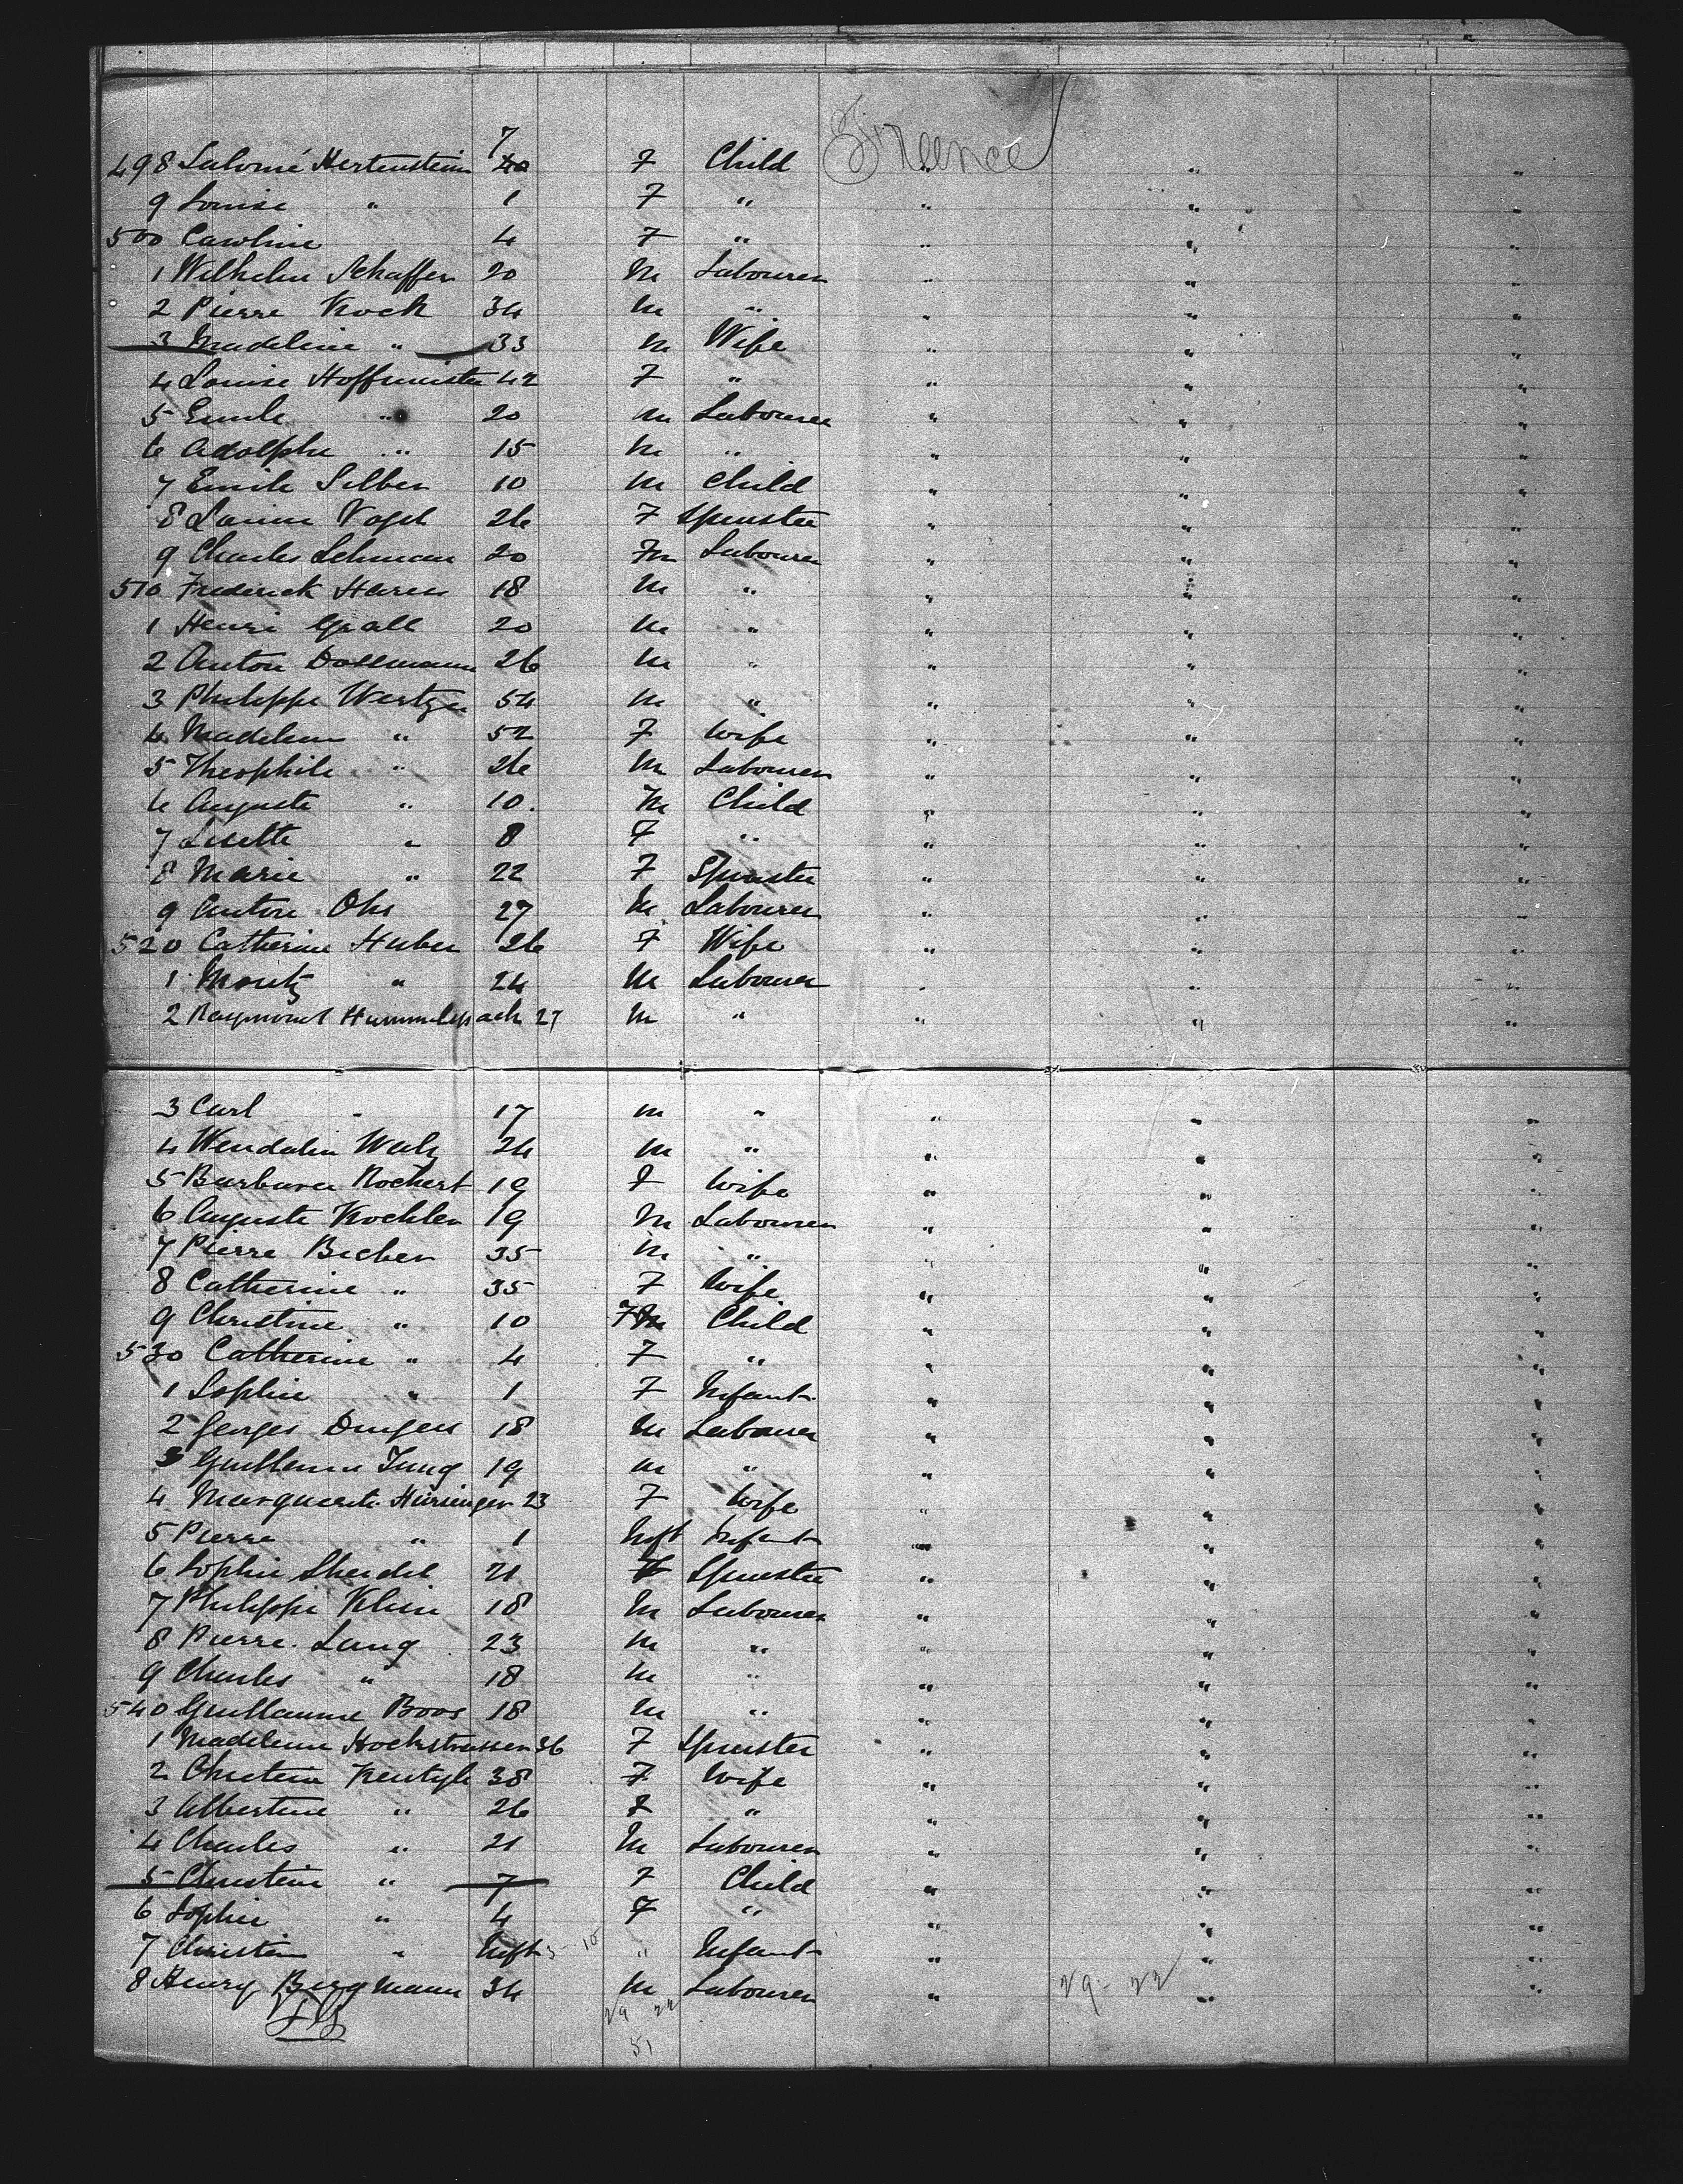 France
498 Salomé Hertenstein 7 F Child " " "
9 Louise " 1 F " " " "
500 Caroline 4 F " " " "
1 Wilhelm Schaffer 20 M Labourer " " "
2 Pierre Kock 34 M " " " "
3 Madeline " 33 M Wife " " "
4 Louise Hoffmeister 42 F " " " "
5 Emile " 20 M Labourer " " "
6 Adolphe " 15 M " " " "
7 Emile Silber 10 M Child " " "
8 Louise Vogel 26 F Spinster " " "
9 Charles Lehman 20 M Labourer " " "
510 Frederick 18 M " " " "
1 Henri Grall 20 M " " " "
2 Anton Dollmann 26 M " " " "
3 Philippe Wertzer 54 M " " " "
4 Madeleine " 52 F Wife " " "
5 Theophile " 26 M Labourer " " "
6 Auguste " 10 M Child " " "
7 Lisette " 8 F " " " "
8 Marie " 22 F Spinster " " "
9 Anton Ohs 27 M Labourer " " "
520 Catherine Huber 26 F Wife " " "
1 Moritz " 24 M Labourer " " "
2 Raymond Hummelspach 27 M " " " "
3 Carl " 17 M " " " "
4 Wendalin Walz 24 M " " " "
5 Barbara Rochert 19 F Wife " " "
6 Auguste Kochler 19 M Labourer " " "
7 Pierre Becher 35 M " " " "
8 Catherine " 35 F Wife " " "
9 Christine " 10 F Child " " "
530 Catherine " 4 F " " " "
1 Sophie " 1 F Infant " " "
2 Georges 18 M Labourer " " "
3 Guillaume Jung 19 M " " " "
4 Marguerite Hirsinger 23 F Wife " " "
5 Pierre " 1 Inft Infant " " "
6 Sophie Sheidel 21 F Spinster " " "
7 Philippe Klein 18 M Labourer " " "
8 Pierre Lang 23 M " " " "
9 Charles " 18 M " " " "
540 Guillaume Boos 18 M " " " "
1 Madeleine Hochstrasser 36 F Spinster " " "
2 38 F Wife " " "
3 Albertine " 26 F " " " "
4 Charles " 21 M Labourer " " "
5 Christine " 7 F Child " " "
6 Sophie " 4 F " " " "
7 Christine " Inft " Infant " " "
8 Henry Bergmann 34 M Labourer " " "
29 22 29-22
51